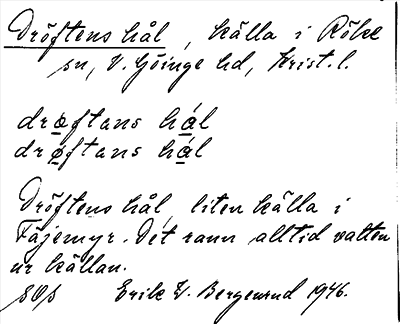 Dröftens hål, källa i Röke
sn, V. Göinge hd, Krist. l.
drøftans hál
drǿftans hál
Dröftens hål, liten källa i
Fäjemyr. Det rann alltid vatten
ur källan.
Erik W. Bergenrud 1946.